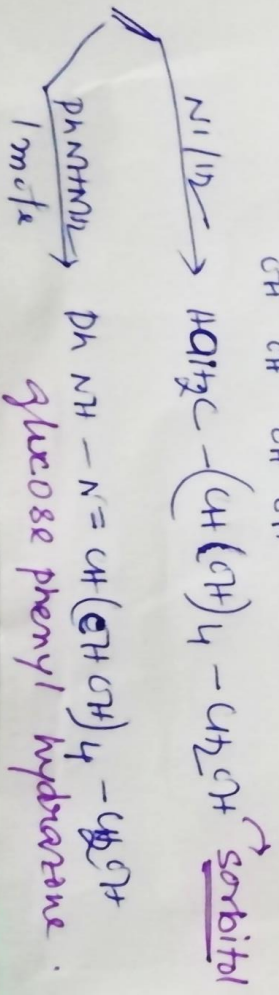 Ni/H2 → HOH2C – (CH(OH)4 – CH2OH → sorbitol
PhNHNH2 → Ph NH – N = CH(CHOH)4 – CH2OH
1 mole
glucose phenyl hydrazone.